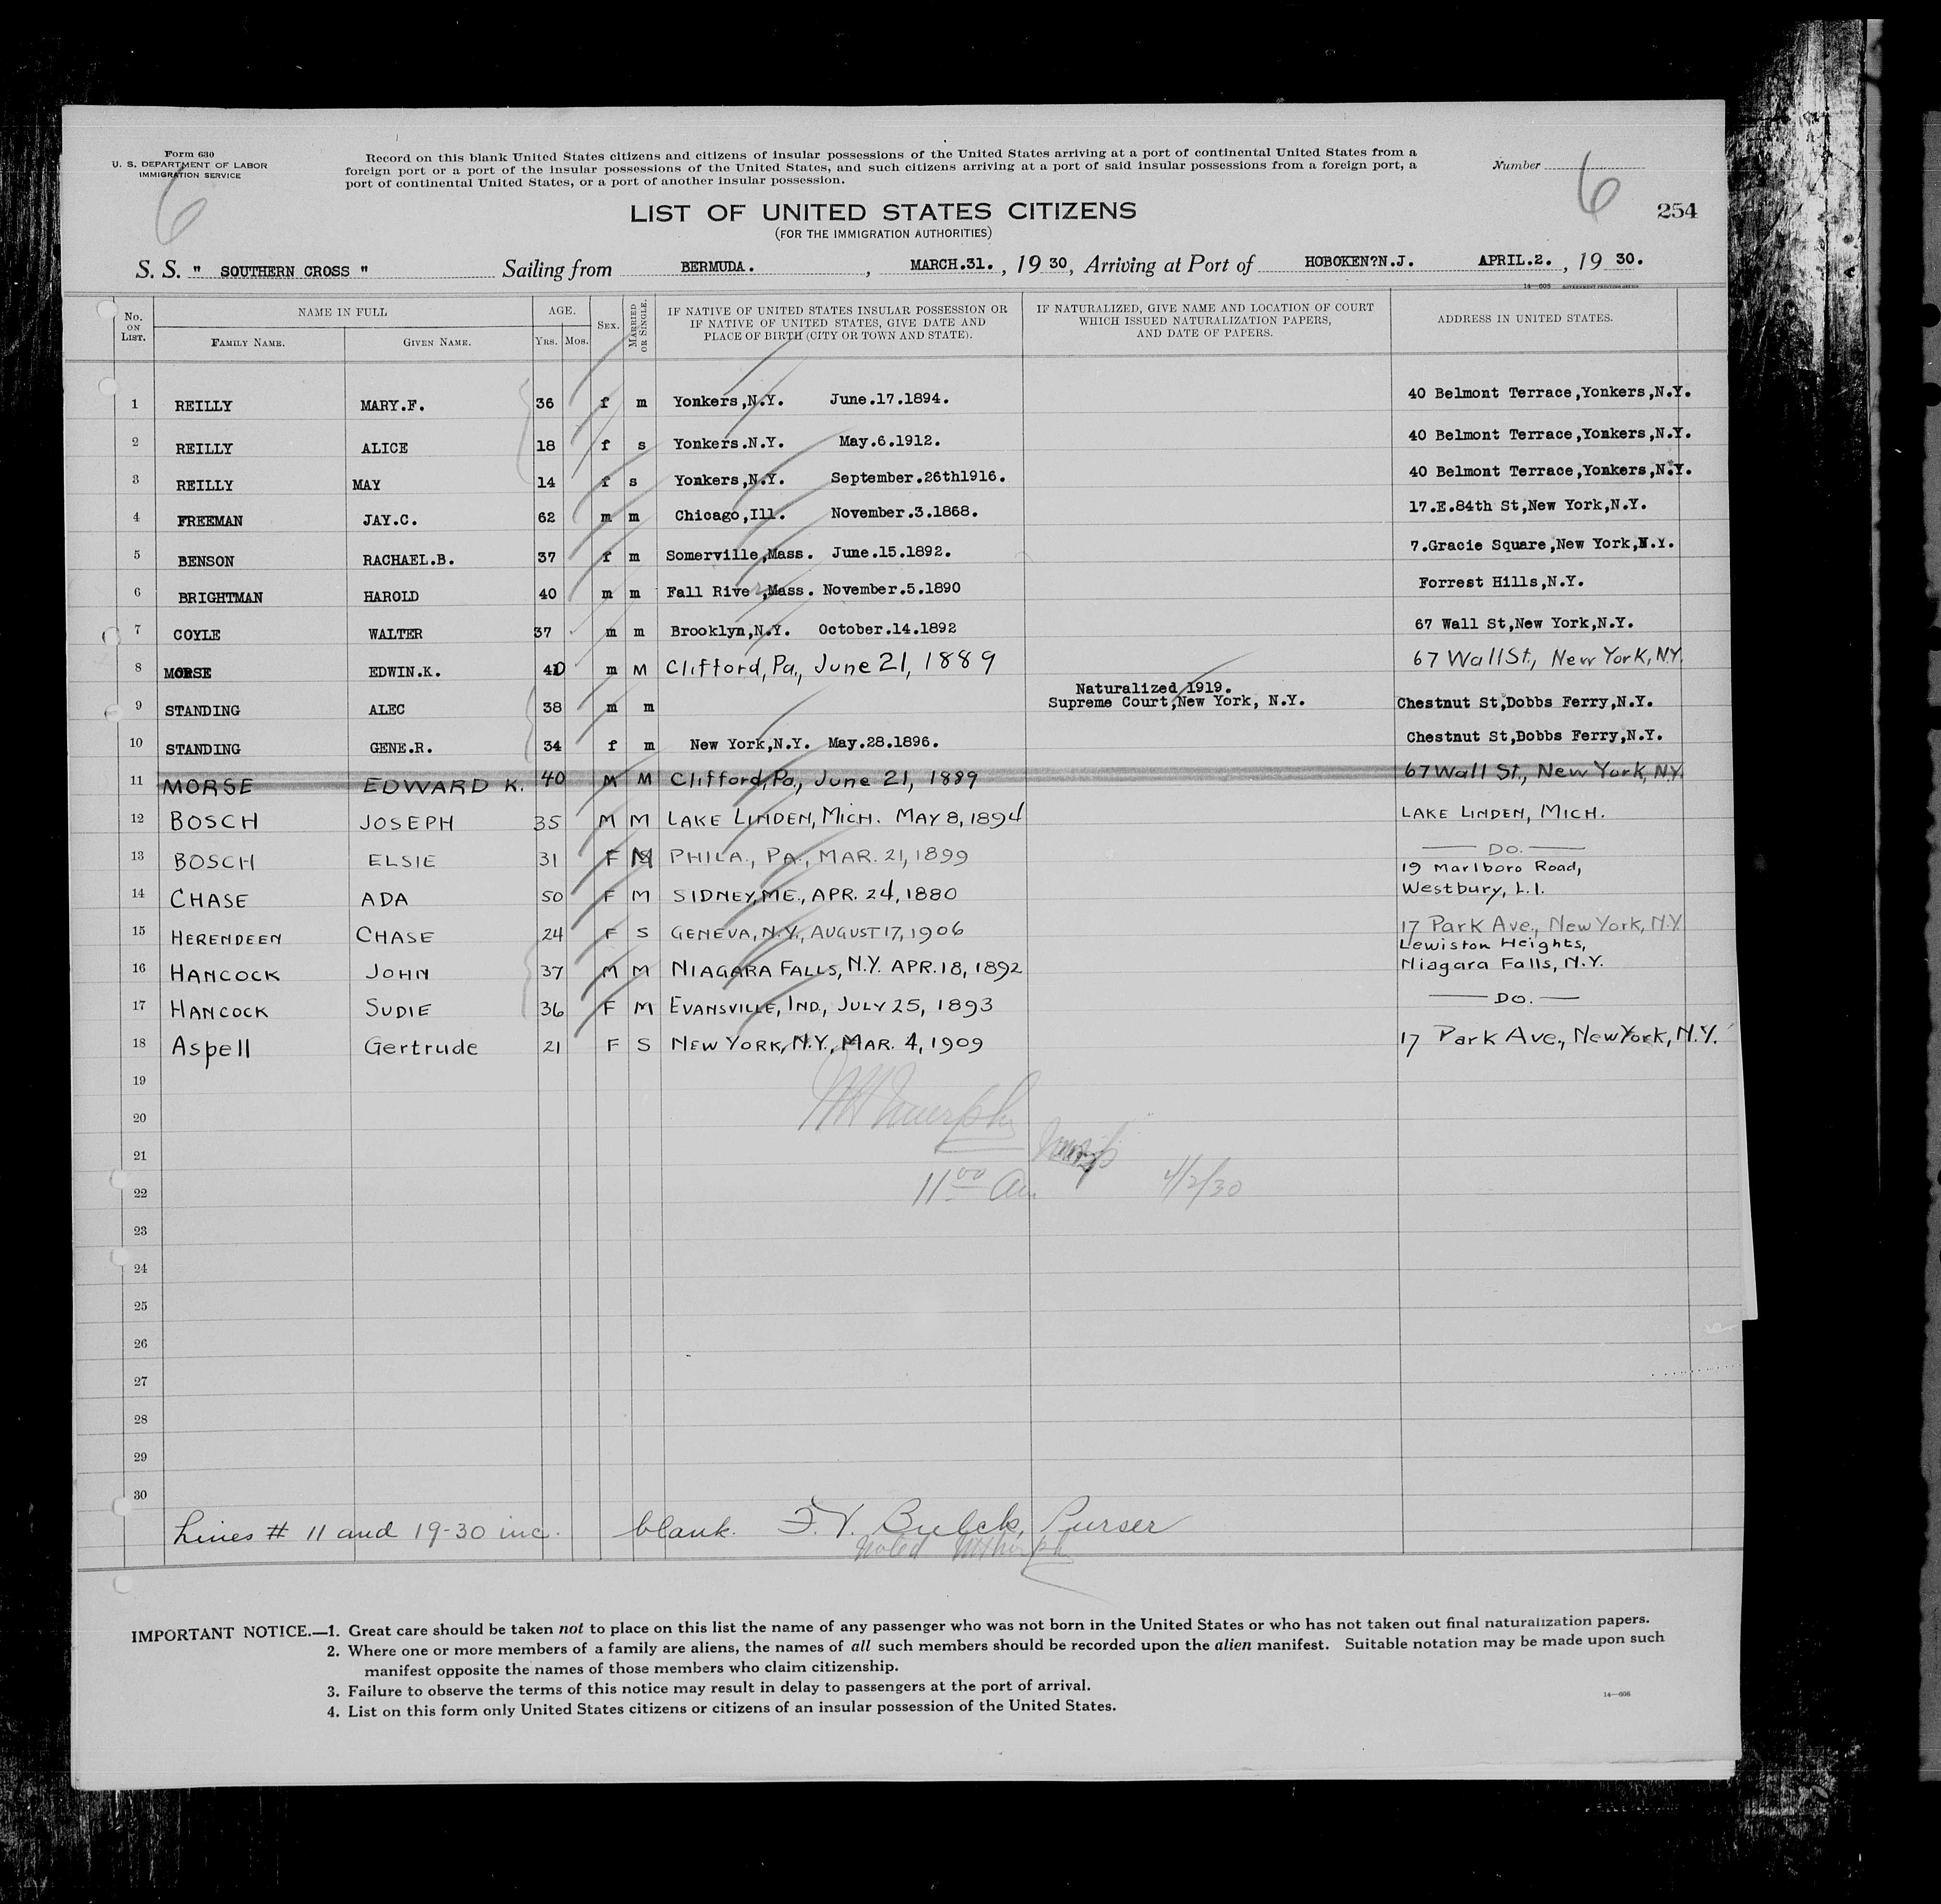 Form 630
U. S. DEPARTMENT OF LABOR
IMMIGRATION SERVICE
6
Record on this blank United States citizens and citizens of insular possessions of the United States arriving at a port of continental United States from a
foreign port or a port of the insular possessions of the United States, and such citizens arriving at a port of said insular possessions from a foreign port, a
port of continental United States, or a port of another insular possession.
Number
6
254
LIST OF UNITED STATES CITIZENS
(FOR THE IMMIGRATION AUTHORITIES)
S. S. " SOUTHERN CROSS " Sailing from BERMUDA. , MARCH.31. , 19 30, Arriving at Port of HOBOKEN?N.J. APRIL.2. , 19 30.
14—608 GOVERNMENT PRINTING OFFICE
No. ON LIST. NAME IN FULL FAMILY NAME. GIVEN NAME. AGE. YRS. MOS. SEX. MARRIED OR SINGLE. IF NATIVE OF UNITED STATES INSULAR POSSESSION OR IF NATIVE OF UNITED STATES, GIVE DATE AND PLACE OF BIRTH (CITY OR TOWN AND STATE). IF NATURALIZED, GIVE NAME AND LOCATION OF COURT WHICH ISSUED NATURALIZATION PAPERS, AND DATE OF PAPERS. ADDRESS IN UNITED STATES.
1 REILLY MARY.F. 36 f m Yonkers,N.Y. June.17.1894. 40 Belmont Terrace,Yonkers,N.Y.
2 REILLY ALICE 18 f s Yonkers.N.Y. May.6.1912. 40 Belmont Terrace,Yonkers,N.Y.
3 REILLY MAY 14 f s Yonkers,N.Y. September.26th1916. 40 Belmont Terrace,Yonkers,N.Y.
4 FREEMAN JAY.C. 62 m m Chicago,Ill. November.3.1868. 17.E.84th St,New York,N.Y.
5 BENSON RACHAEL.B. 37 f m Somerville,Mass. June.15.1892. 7.Gracie Square,New York,N.Y.
6 BRIGHTMAN HAROLD 40 m m Fall River,Mass. November.5.1890 Forrest Hills,N.Y.
7 COYLE WALTER 37 m m Brooklyn,N.Y. October.14.1892 67 Wall St,New York,N.Y.
8 MORSE EDWIN.K. 40 m M Clifford, Pa., June 21, 1889 67 Wall St., New York, N.Y.
9 STANDING ALEC 38 m m Naturalized 1919. Supreme Court,New York, N.Y. Chestnut St,Dobbs Ferry,N.Y.
10 STANDING GENE.R. 34 f m New York,N.Y. May.28.1896. Chestnut St,Dobbs Ferry,N.Y.
11 MORSE EDWARD K. 40 M M Clifford, Pa., June 21, 1889 67 Wall St., New York, N.Y.
12 BOSCH JOSEPH 35 M M LAKE LINDEN, MICH. MAY 8, 1894 LAKE LINDEN, MICH.
13 BOSCH ELSIE 31 F M PHILA., PA., MAR. 21, 1899 — DO. —
14 CHASE ADA 50 F M SIDNEY, ME., APR. 24, 1880 19 Marlboro Road, Westbury, L.I.
15 HERENDEEN CHASE 24 F S GENEVA, N.Y., AUGUST 17, 1906 17 Park Ave., New York, N.Y.
16 HANCOCK JOHN 37 M M NIAGARA FALLS, N.Y. APR. 18, 1892 Lewiston Heights, Niagara Falls, N.Y.
17 HANCOCK SUDIE 36 F M EVANSVILLE, IND., JULY 25, 1893 — DO. —
18 Aspell Gertrude 21 F S NEW YORK, N.Y., MAR. 4, 1909 17 Park Ave., New York, N.Y.
19
20 Murphy
21
22 11 00 Am 4/2/30
23
24
25
26
27
28
29
30
Lines # 11 and 19-30 inc. blank. F. V. Bulck, Purser
Noted
IMPORTANT NOTICE.—1. Great care should be taken not to place on this list the name of any passenger who was not born in the United States or who has not taken out final naturalization papers.
2. Where one or more members of a family are aliens, the names of all such members should be recorded upon the alien manifest. Suitable notation may be made upon such
manifest opposite the names of those members who claim citizenship.
3. Failure to observe the terms of this notice may result in delay to passengers at the port of arrival.
4. List on this form only United States citizens or citizens of an insular possession of the United States.
14—608